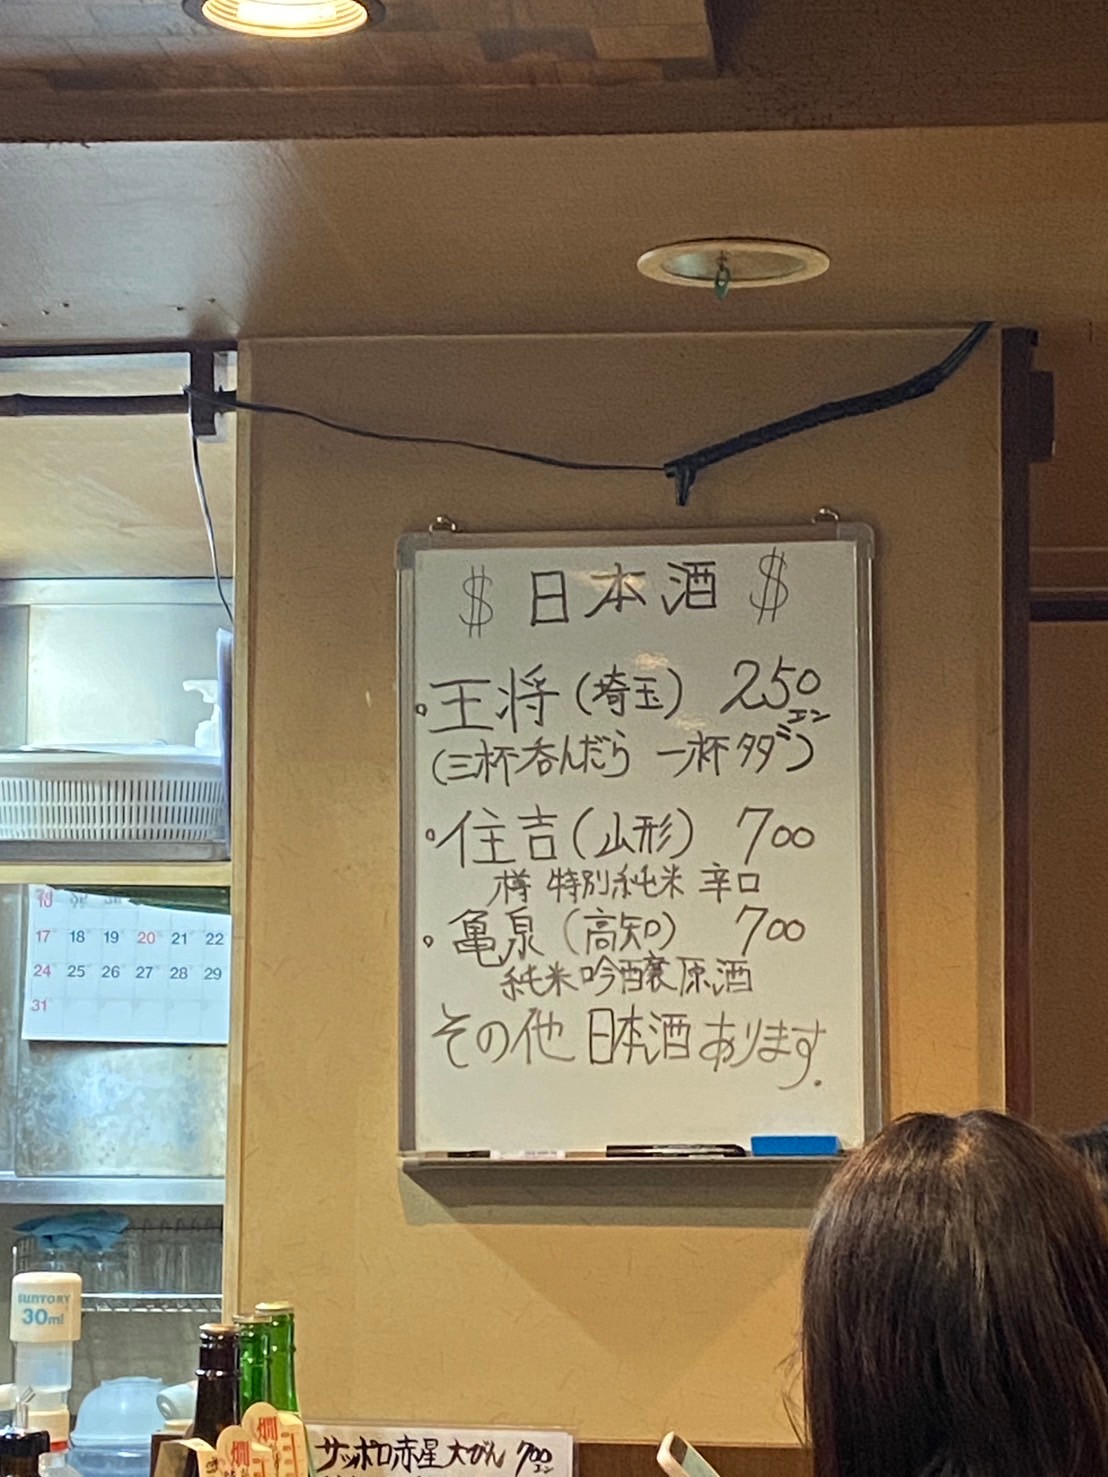 $ 日本酒 $
・王将(埼玉) 250エン
(三杯呑んだら 一杯タダ)
・住吉(山形) 700
樽 特別純米 辛口
・亀泉(高知) 700
純米吟醸原酒
その他 日本酒あります.
17 18 19 20 21 22
24 25 26 27 28 29
31
SUNTORY
30ml
燗
燗
サッポロ赤星大びん 700エン